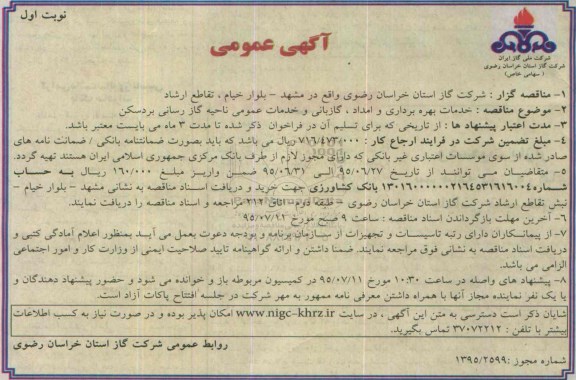 نوبت اول
آگهی عمومی
شرکت ملی گاز ایران
شرکت گاز استان خراسان رضوی
(سهامی خاص)
۱- مناقصه گزار : شرکت گاز استان خراسان رضوی واقع در مشهد – بلوار خیام ، تقاطع ارشاد
۲- موضوع مناقصه : خدمات بهره برداری و امداد ، گازبانی و خدمات عمومی ناحیه گاز رسانی بردسکن
۳- مدت اعتبار پیشنهاد ها : از تاریخی که برای تسلیم آن در فراخوان ذکر شده تا مدت ۳ ماه می بایست معتبر باشد.
۴- مبلغ تضمین شرکت در فرایند ارجاع کار : ۷۱۶/۴۷۳/۰۰۰ ریال می باشد که باید بصورت ضمانتنامه بانکی / ضمانت نامه های
صادر شده از سوی موسسات اعتباری غیر بانکی که دارای مجوز لازم از طرف بانک مرکزی جمهوری اسلامی ایران هستند تهیه گردد.
۵- متقاضیان می توانند از تاریخ ۹۵/۰۶/۲۷ الی ۹۵/۰۶/۳۱ ضمن واریز مبلغ ۱۶۰/۰۰۰ ریال به حساب
شماره ۱۳۰۱۶۰۰۰۰۰۰۲۱۶۴۵۳۱۶۱۶۰۰۴ بانک کشاورزی جهت خرید و دریافت اسناد مناقصه به نشانی مشهد – بلوار خیام –
نبش تقاطع ارشاد شرکت گاز استان خراسان رضوی – طبقه دوم – اتاق ۲۱۲ مراجعه و اسناد مناقصه را دریافت نمایند.
۶- آخرین مهلت بازگرداندن اسناد مناقصه : ساعت ۹ صبح مورخ ۹۵/۰۷/۱۲
۷- از پیمانکاران دارای رتبه تاسیسات و تجهیزات از سازمان برنامه و بودجه دعوت بعمل می آید بمنظور اعلام آمادگی کتبی و
دریافت اسناد مناقصه به نشانی فوق مراجعه نمایند. ضمنا داشتن و ارائه گواهینامه تایید صلاحیت ایمنی از وزارت کار و امور اجتماعی
الزامی می باشد.
۸- پیشنهاد های واصله در ساعت ۱۰:۳۰ مورخ ۹۵/۰۷/۱۱ در کمیسیون مربوطه باز و خوانده می شود و حضور پیشنهاد دهندگان و
یا یک نفر نماینده مجاز آنها با همراه داشتن معرفی نامه ممهور به مهر شرکت در جلسه افتتاح پاکات آزاد است.
شایان ذکر است دسترسی به متن این آگهی ، در سایت www.nigc-khrz.ir امکان پذیر بوده و در صورت نیاز به کسب اطلاعات
بیشتر با تلفن : ۳۷۰۷۲۲۱۲ تماس بگیرید.
روابط عمومی شرکت گاز استان خراسان رضوی
شماره مجوز :۱۳۹۵/۲۵۹۹